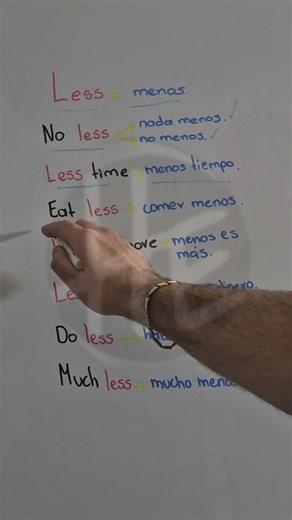 Less = menos.
No less nada menos.
no menos.
Less time → menos tiempo.
Eat less → comer menos.
→ menos es
más.
Do less →
Much less → mucho menos